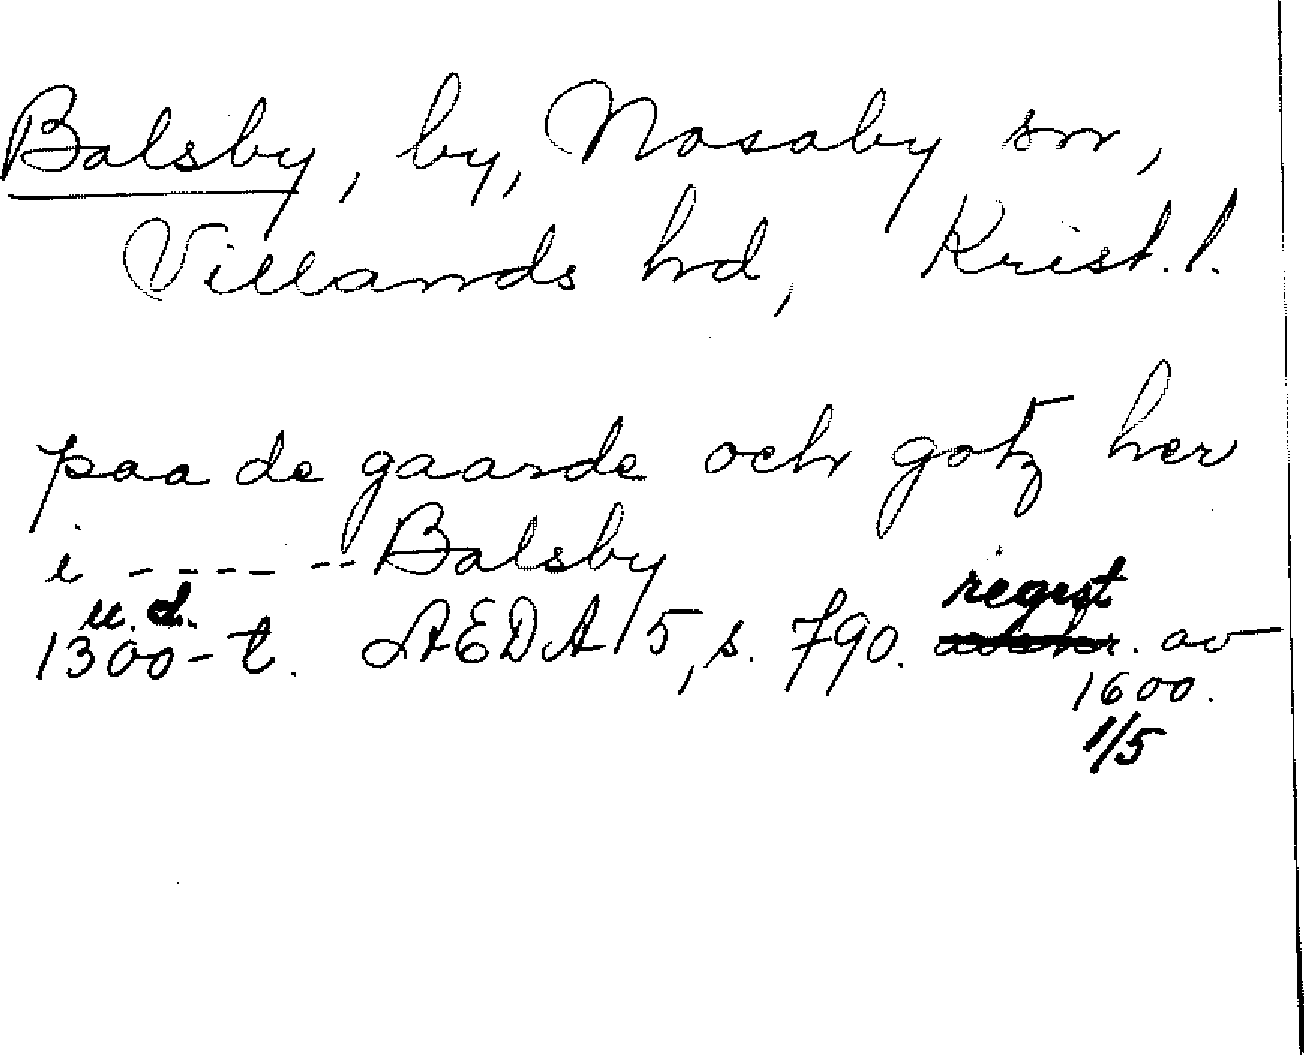 Balsby, by, Nosaby sn,
Villands hd, Krist. l.
paa de gaarde och gotz her
i ---- -- Balsby
u. d. regist
1300-t. ÆDA 5, s. 790. av
1600.
1/5